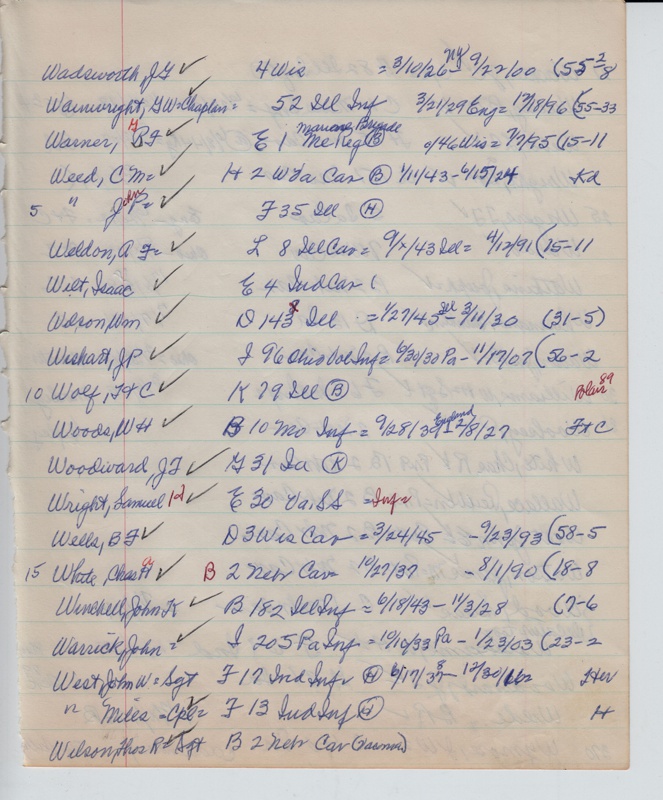 Wadsworth, J G ✓ 4 Wis = 3/10/26 NY - 9/22/00 (55-2-8
Wainwright, G W = Chaplin = 52 Ill Inf 3/21/29 Eng = 12/18/96 (55-33
Warner, B F ✓ E 1 Me Reg (B) Wis = 7/7/95 (15-11
Weed, C M = ✓ H 2 W Va Cav (B) 1/11/43 - 4/15/24 Kd
5 " John P = ✓ F 35 Ill (H)
Weldon, A F = ✓ L 8 Ill Cav = /43 Ill = 4/12/91 (15-11
Wilt, Isaac ✓ E 4 Ind Cav (
Wilson, Wm ✓ D 143 Ill = 1/27/45 Ill - 3/11/30 (31-5)
Wishart, J P ✓ I 96 Ohio Vol Inf = 6/30/30 Pa - 11/17/07 (56-2
10 Wolf, F + C ✓ K 79 Ill (B) Blair 89
Woods, W H ✓ B 10 Mo Inf = 9/28/ England 12/8/27 F + C
Woodward, J F ✓ G 31 Ia (K)
Wright, Samuel ✓ E 30 Va SS = Inf =
Wells, B F ✓ D 3 Wis Cav = 3/24/45 - 9/23/93 (58-5
15 White, Chas ✓ B 2 Nebr Cav 10/27/37 - 8/1/90 (18-8
Winchell, John K ✓ B 182 Ill Inf = 6/18/43 - 11/3/28 (7-6
Warrick, John = ✓ I 205 Pa Inf = 10/10/33 Pa - 1/23/03 (23-2
West, John W = Sgt F 17 Ind Inf (H) 6/17/38 - 12/30/ Her
" Miles = Cpl = ✓ F 13 Ind Inf (H) H
Wilson, Thos R = Sgt B 2 Nebr Cav